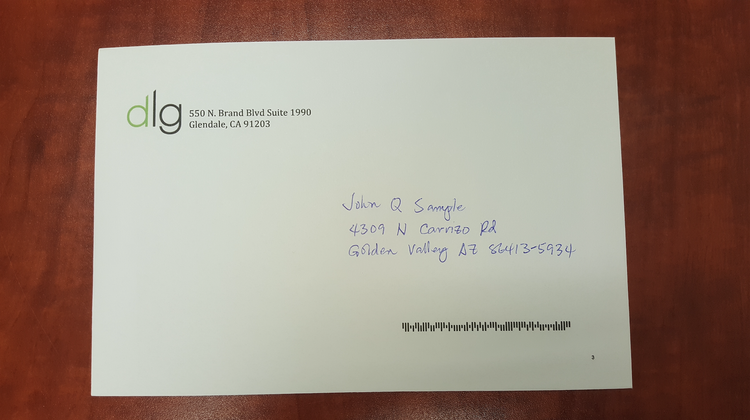 dlg
550 N. Brand Blvd Suite 1990
Glendale, CA 91203
John Q Sample
4309 N Carrizo Rd
Golden Valley AZ 86413-5934
3